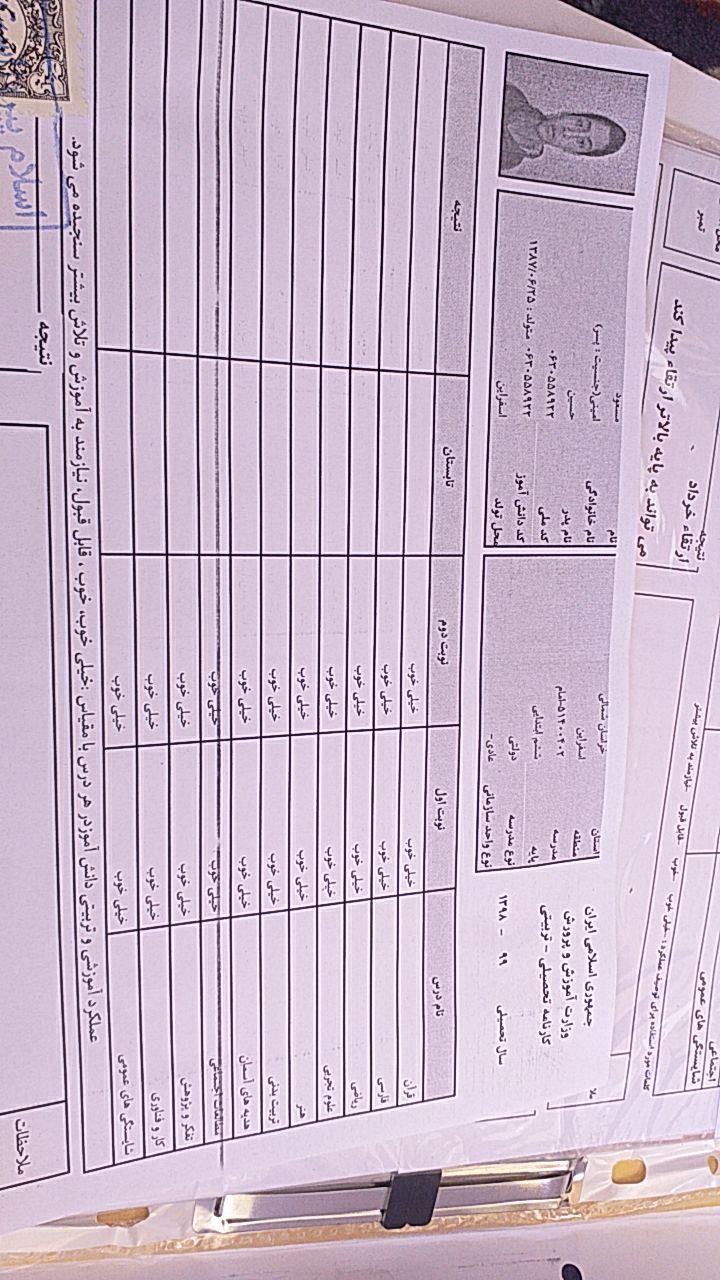 جمهوری اسلامی ایران
وزارت آموزش و پرورش
کارنامه تحصیلی - تربیتی
سال تحصیلی ۹۹ - ۱۳۹۸
استان خراسان شمالی
منطقه اسفراین
مدرسه
پایه ششم ابتدایی
نوع مدرسه دولتی
نوع واحد سازمانی عادی-
نام مسعود
نام خانوادگی امینی(جنسیت : پسر)
نام پدر حسین
کد ملی ۰۶۳۰۵۵۸۹۲۲
کد دانش آموز ۰۶۳۰۵۵۸۹۲۲ متولد : ۱۳۸۷/۰۶/۲۵
محل تولد اسفراین
نام درس نوبت اول نوبت دوم تابستان نتیجه
قرآن خیلی خوب خیلی خوب
فارسی خیلی خوب خیلی خوب
ریاضی خیلی خوب خیلی خوب
علوم تجربی خیلی خوب خیلی خوب
هنر خیلی خوب خیلی خوب
تربیت بدنی خیلی خوب خیلی خوب
هدیه های آسمان خیلی خوب خیلی خوب
مطالعات اجتماعی خیلی خوب خیلی خوب
تفکر و پژوهش خیلی خوب خیلی خوب
کار و فناوری خیلی خوب خیلی خوب
شایستگی های عمومی خیلی خوب خیلی خوب
عملکرد آموزشی و تربیتی دانش آموزدر هر درس با مقیاس :خیلی خوب، خوب ، قابل قبول، نیازمند به آموزش و تلاش بیشتر سنجیده می شود.
ملاحظات
نتیجه
اسلام
اجتماعی
شایستگی های عمومی
کلمات مورد استفاده برای توصیف عملکرد : خیلی خوب خوب قابل قبول نیازمند به تلاش بیشتر
نتیجه
ارتقاء خرداد
می تواند به پایه بالاتر ارتقاء پیدا کند